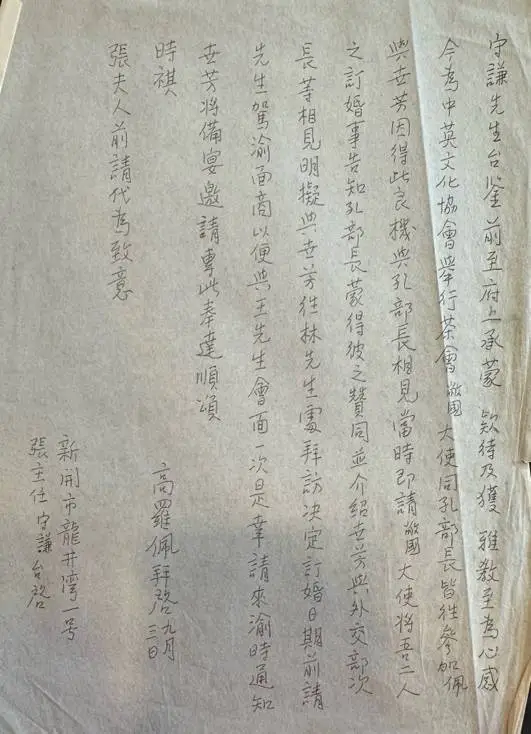 守謙先生台鉴前至府上承蒙 欵待及獲 雅教至為心感
今為中英文化協會舉行茶會 敝國 大使同孔部長皆往參加佩
與世芳因得此良機與孔部長相見當時即請敝國大使將吾二人
之訂婚事告知孔部長蒙得彼之贊同並介紹世芳與外交部次
長等相見明擬與世芳往林先生處拜訪決定訂婚日期前請
先生駕渝面商以便與王先生會面一次是幸請來渝時通知
世芳將備宴邀請專此奉達順頌
時祺
張夫人前請代為致意
高羅佩拜啓九月三日
新開市龍井湾一号
張主任 守謙 台啓